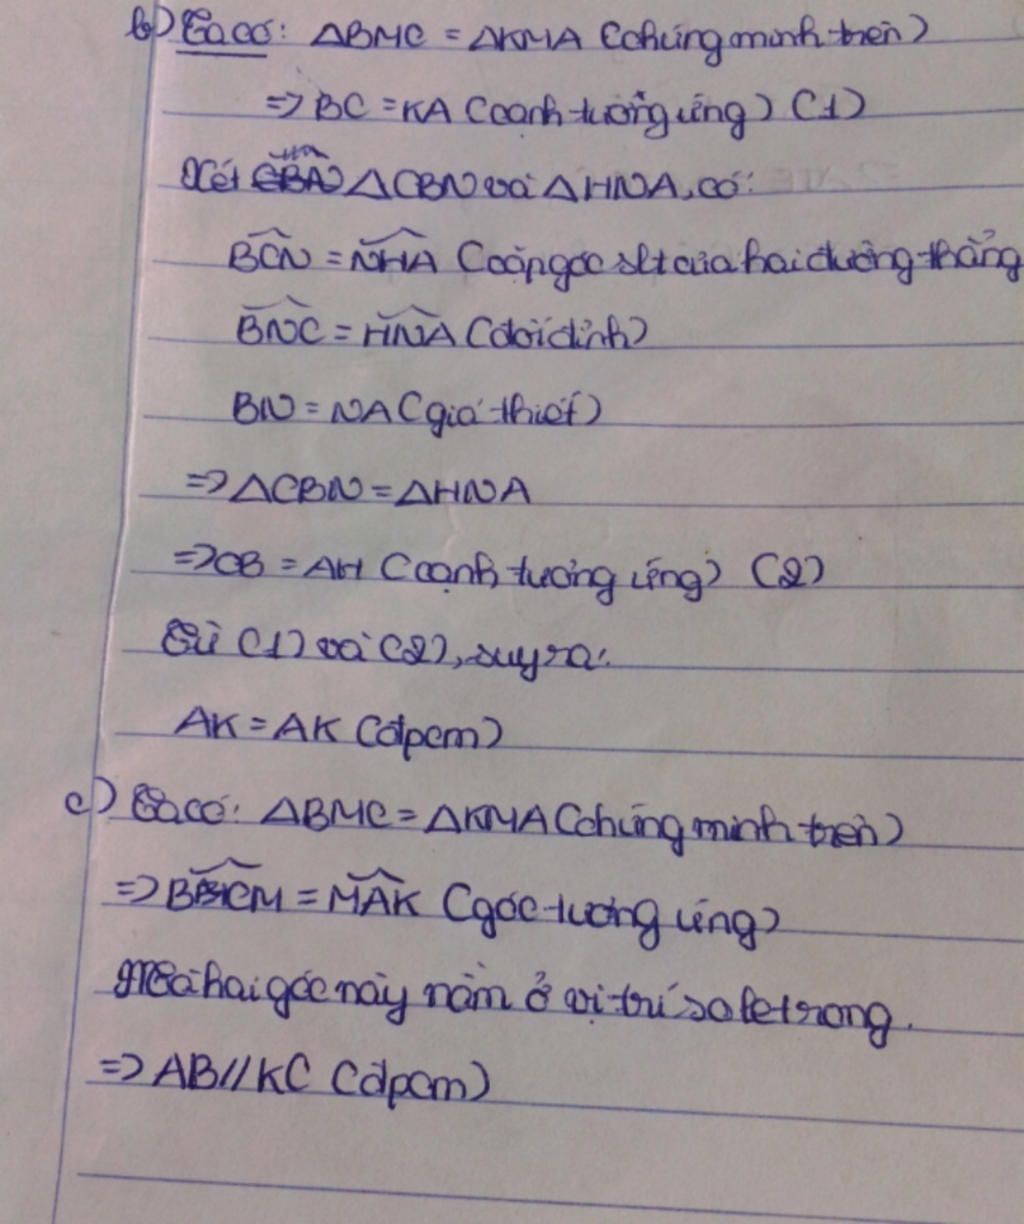 b) Ta có: ΔBMC = ΔKMA (chứng minh trên)
=> BC = KA (cạnh tương ứng) (1)
Xét ΔCBN và ΔHNA, có:
BCN = NHA (cặp góc slt của hai đường thẳng
BNC = HNA (đối đỉnh)
BN = NA (giả thiết)
=> ΔCBN = ΔHNA
=> CB = AH (cạnh tương ứng) (2)
Từ (1) và (2), suy ra:
AK = AK (đpcm)
c) Ta có: ΔBMC = ΔKMA (chứng minh trên)
=> BCM = MAK (góc tương ứng)
Mà hai góc này nằm ở vị trí so le trong.
=> AB // KC (đpcm)